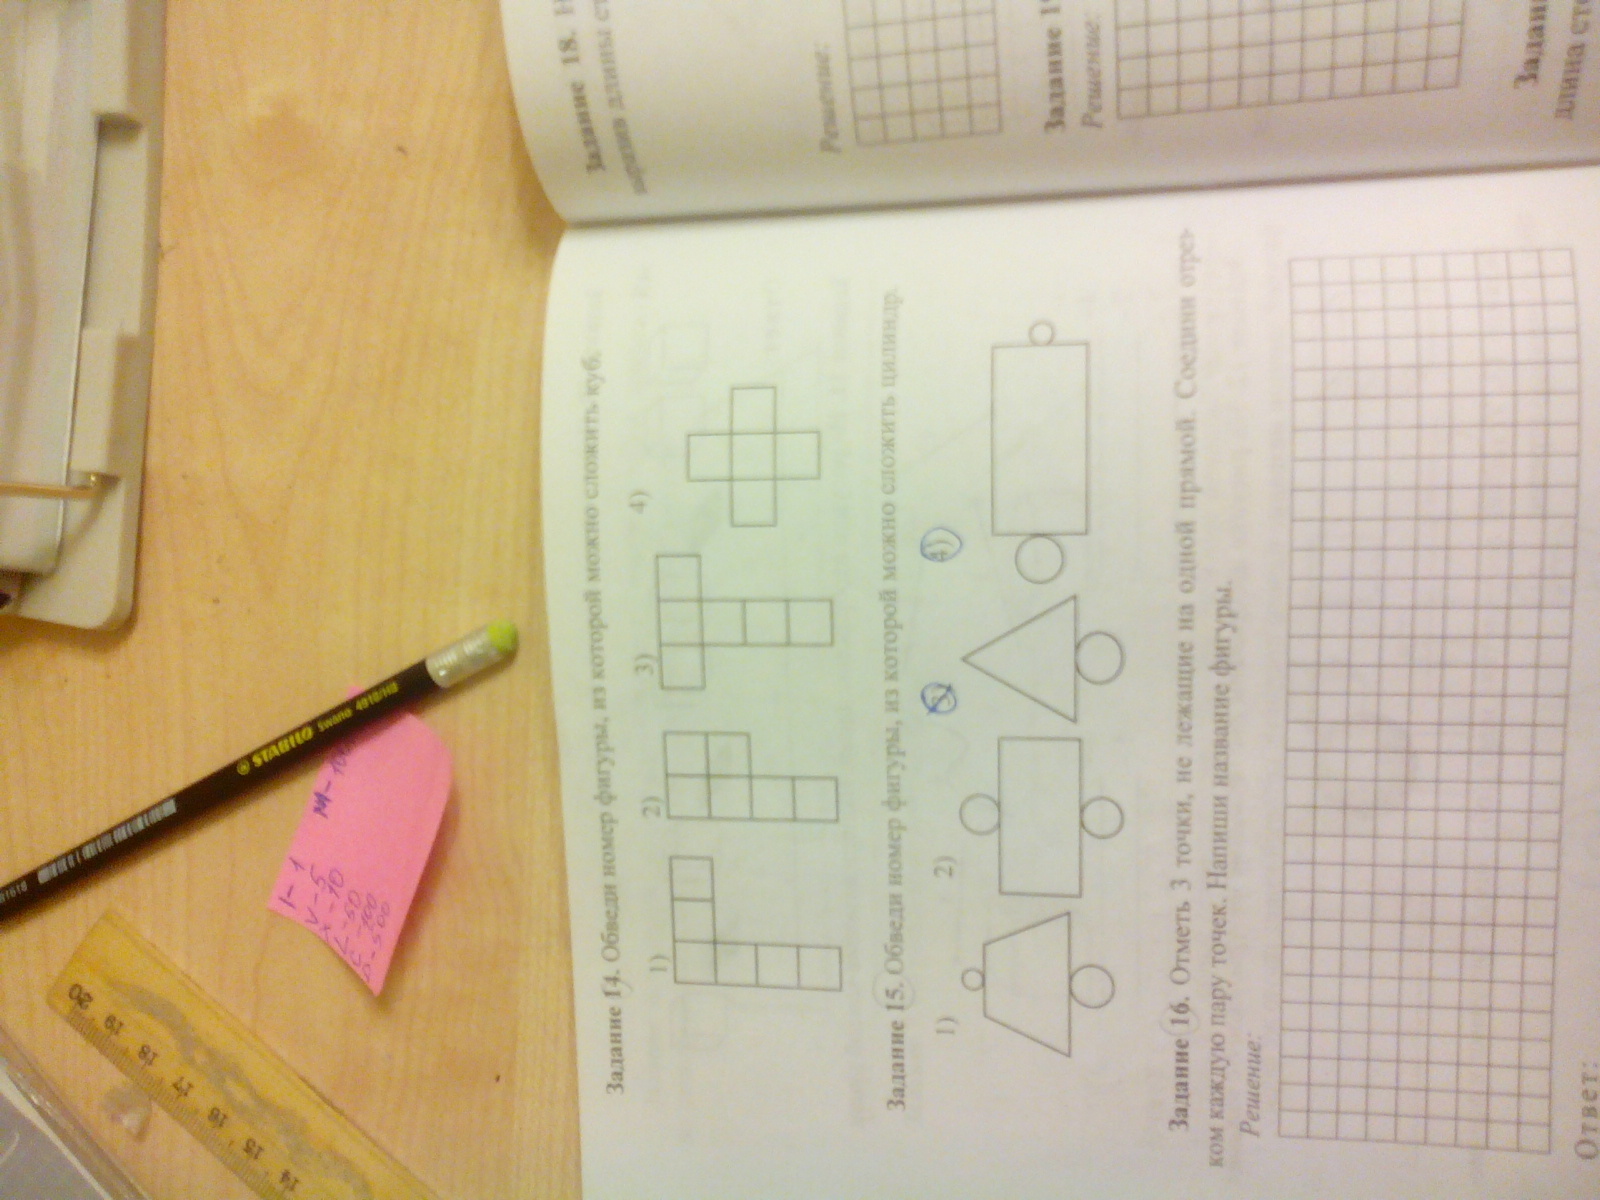 Задание 14. Обведи номер фигуры, из которой можно сложить куб.
1) 2) 3) 4)
Задание 15. Обведи номер фигуры, из которой можно сложить цилиндр.
1) 2) 3) 4)
Задание 16. Отметь 3 точки, не лежащие на одной прямой. Соедини отрез-
ком каждую пару точек. Напиши название фигуры.
Решение:
Ответ:
Задание 18.
длины
Решение:
Задание
Решение:
Задание
длина
STABILO Swano 4918/HB
I-1
V-5
X-10
L-50
C-100
D-500
M-
20 19 18 17 16 15 14